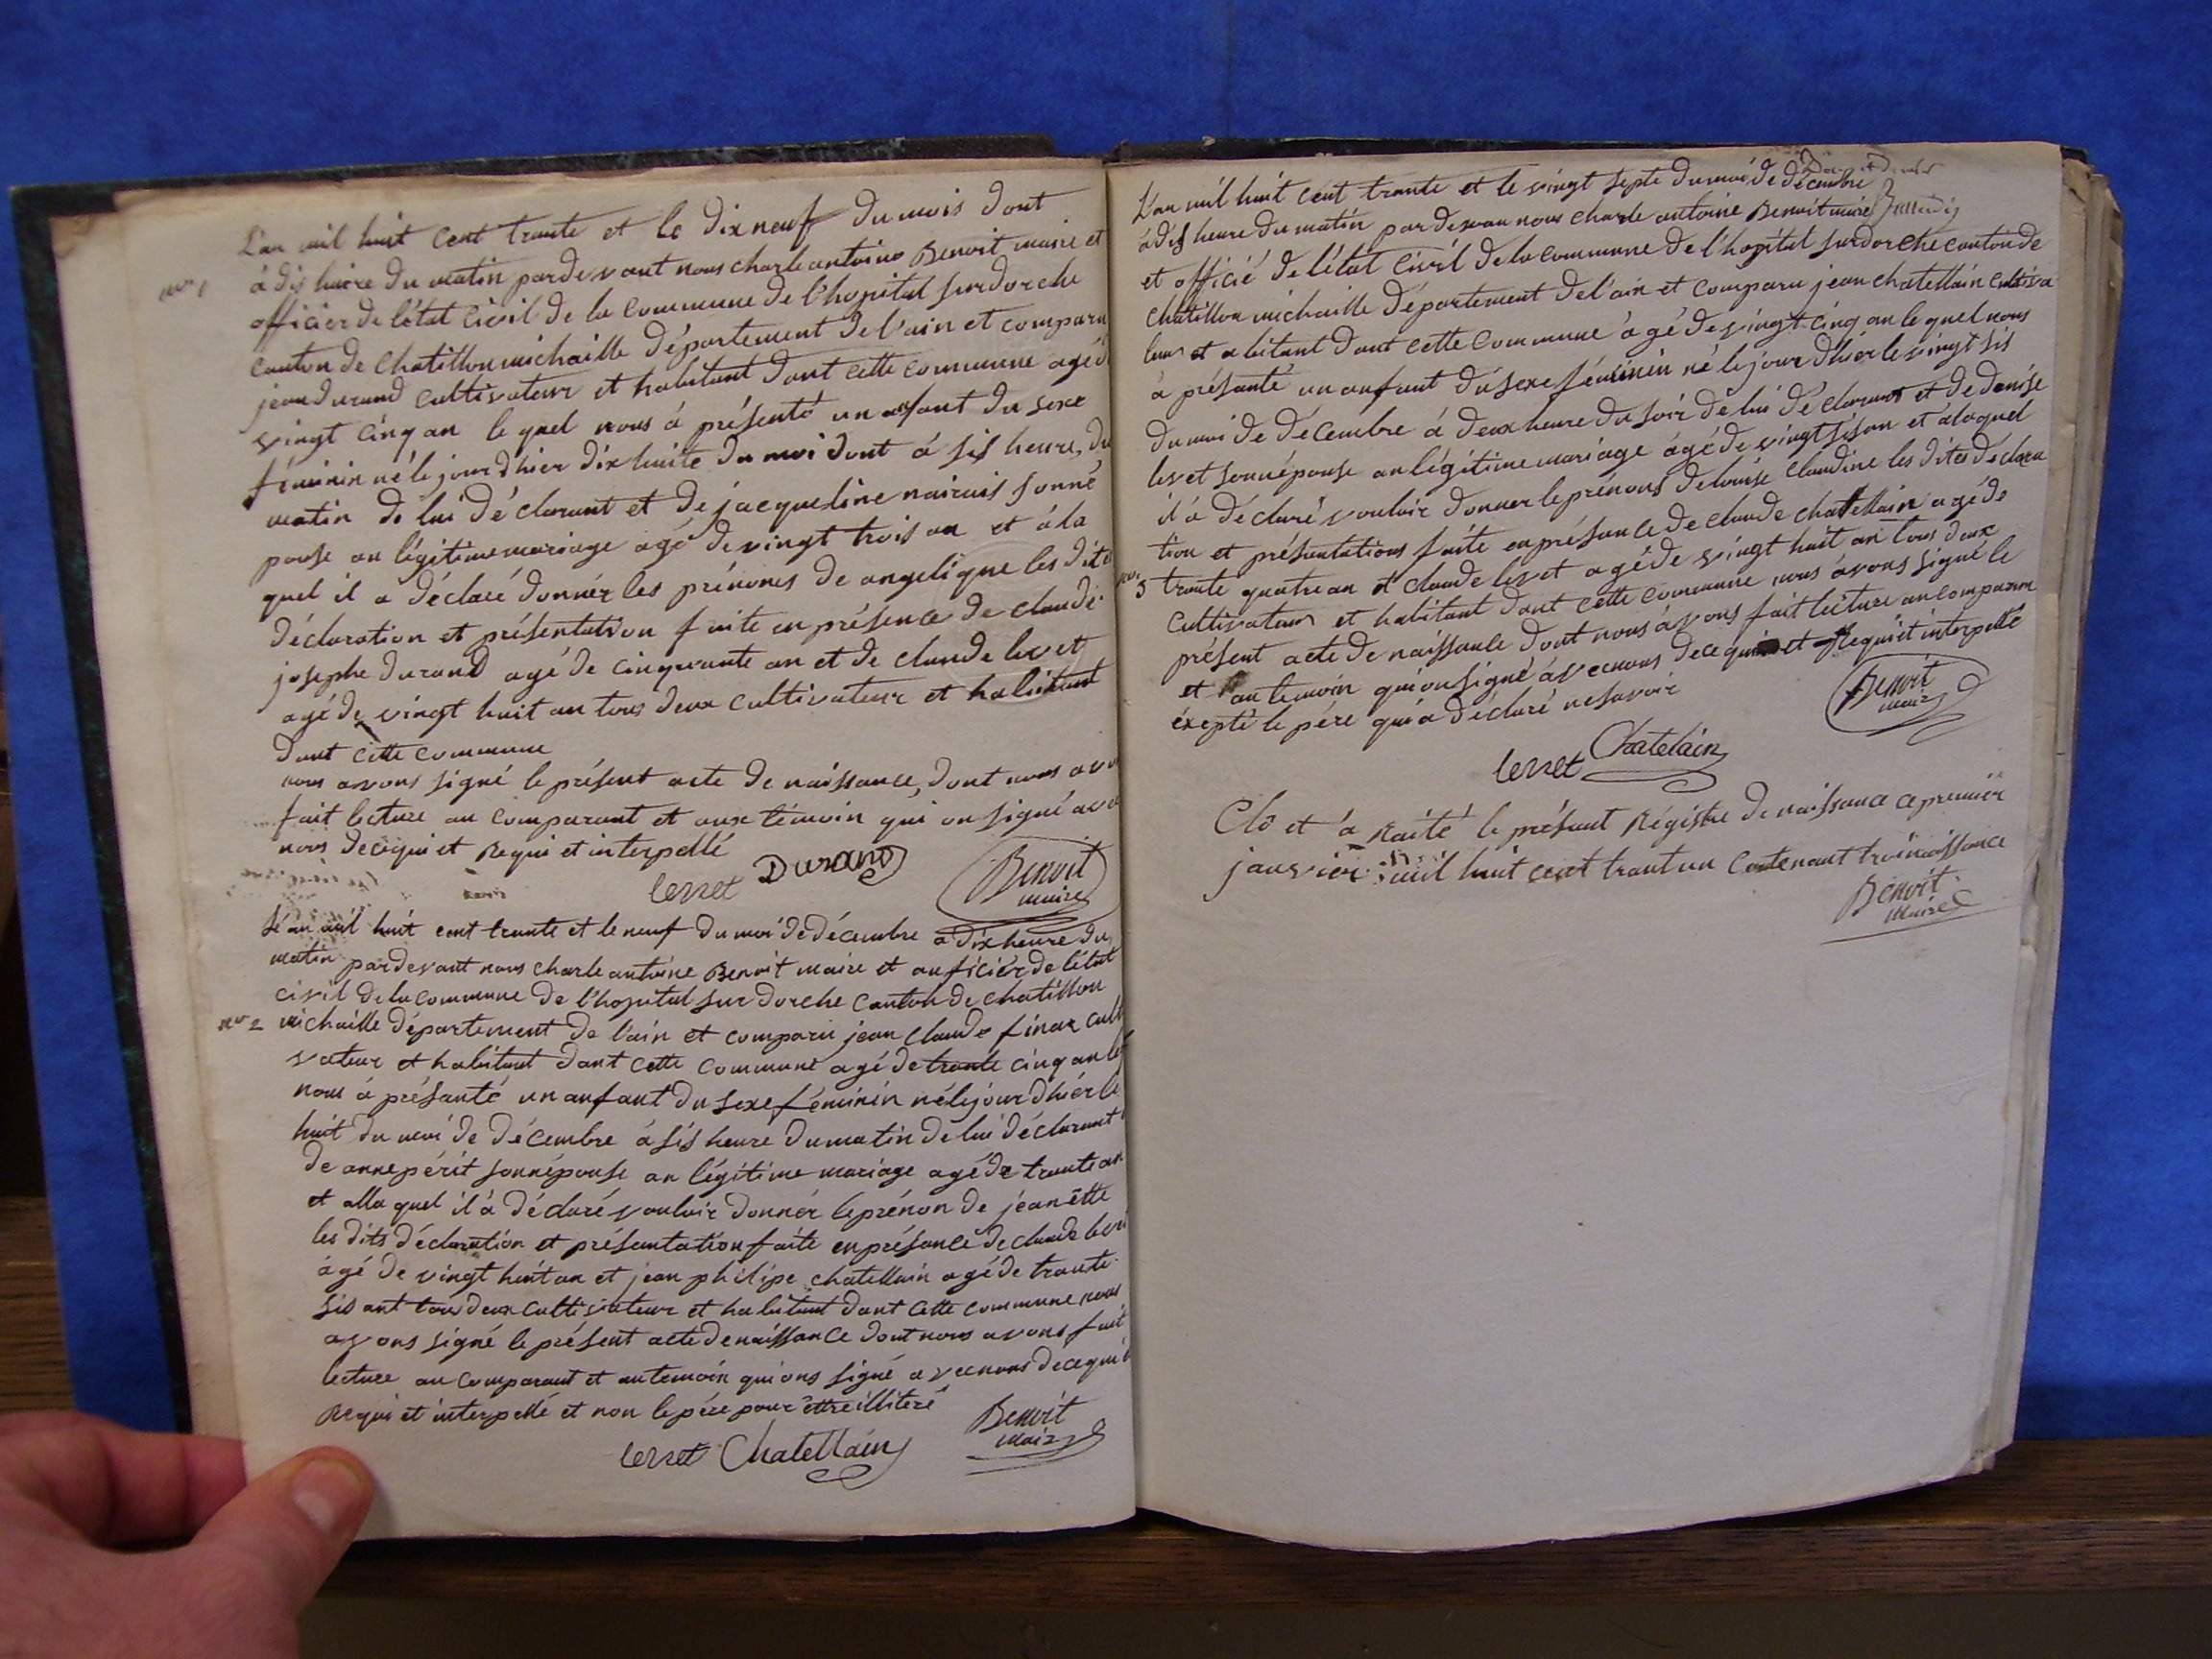 L'an mil huit cent trante et le dix neuf du mois d'out
nor 1
à dis heure du matin pardevant nous charle antoine Benoit maire et
officier de l'état civil de la commune de l'hopital surdorche
canton de chatillon michaille département de l'ain et comparu
jean durand cultivateur et habitant dant cette commune agé d
vingt cinq an le quel nous à présenté un anfant du sexe
féminin né le jour d'hier dix huite du moi dout à sis heure du
matin de lui déclarant et de jacqueline sonné
pouse an légitime mariage agé de vingt trois an et à la
quel il a déclaré donnér les prénoms de angelique les dite
déclaration et présentation faite en présence de claude
josephe durand agé de cinquante an et de claude levet
agé de vingt huit an tous deux cultivateur et habitant
dant cette commune
nous avons signé le présent acte de naissance, dont nous avo
fait lecture au comparant et aux témoin qui on signé ave
nous de ce qui et Requi et interpellé
levet Durand Benoit
maire
L'an mil huit cent trante et le neuf du moi de décembre a dix heure du
matin pardevant nous charle antoine Benoit maire et auficiér de l'état
civil de la commune de l'hopital sur dorche canton de chatillon
nor 2 michaille département de l'ain et comparu jean claude finaz culti
vateur et habitant dant cette commune agé de trante cinq an le
nous à présanté un anfant du sexe féminin né le jour d'hiér le
huit du moi de décembre à sis heure du matin de lui déclarant
de anne périt sonnépouse an légitime mariage agé de trante an
et alla quel il à déclaré vouloir donnér le prénon de jeanétte
les dits déclaration et présantation faite en présance de claude leve
agé de vingt huit an et jean philipe chatellain agé de trante
sis ant tous deux cultivateur et habitant dant cette commune nous
avons signé le présent acte de naissance dont nous avons fait
lecture au comparant et au temoin qui ons signé avec nous de ce qui é
Requi et interpellé et non le pére pour éttre illitéré
levet Chatellain Benoit
maire
L'an mil huit cent trante et le vingt septe du moi de décembre
à dis heure du matin par devan nous charle antoine Benoit maire
et officié de l'état civil de la commune de l'hopital surdorche canton de
chatillon michaille département de l'ain et comparu jean chatellain cultiva
teur et abitant dant cette commune agé de vingt cinq an le quel nous
à présanté un anfant du sexe féminin né le jour d'hier le vingt sis
du moi de décembre à deux heure du soir de lui déclarant et de denise
levet sonnépouse an légitime mariage agé de vingt sis an et à la quel
il à déclaré vouloir donner le prénons de louise claudine les dites déclara
tion et présantations faite en présance de claude chatellain agé de
nor 3 trante quatre an et claude levet agé de vingt huit an tous deux
cultivateur et habitant dant cette commune nous avons signé le
présent acte de naissance dont nous avons fait lecture au comparan
et au temoin qui on signé avec nous de ce qui et Requi et interpellé
éxepté le pére qui a déclaré ne savoir
levet Chatelain Benoit
maire
Clô et à Raité le présant Régistre de naissance ce premiér
janvier mil huit cent trant un contenant troi naissance
Benoit
maire